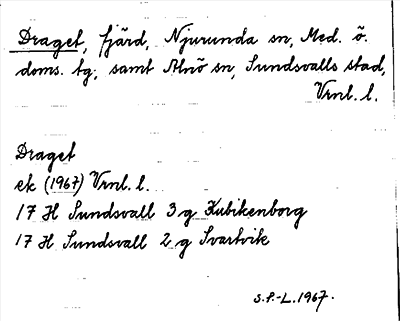 Draget, fjärd, Njurunda sn, Med. ö.
doms. tg; samt Alnö sn, Sundsvalls stad,
Vrnl. l.
Draget
ek (1967) Vrnl. l.
17 H Sundsvall 3 g Kubikenborg
17 H Sundsvall 2 g Svartvik
S.P.-L. 1967.